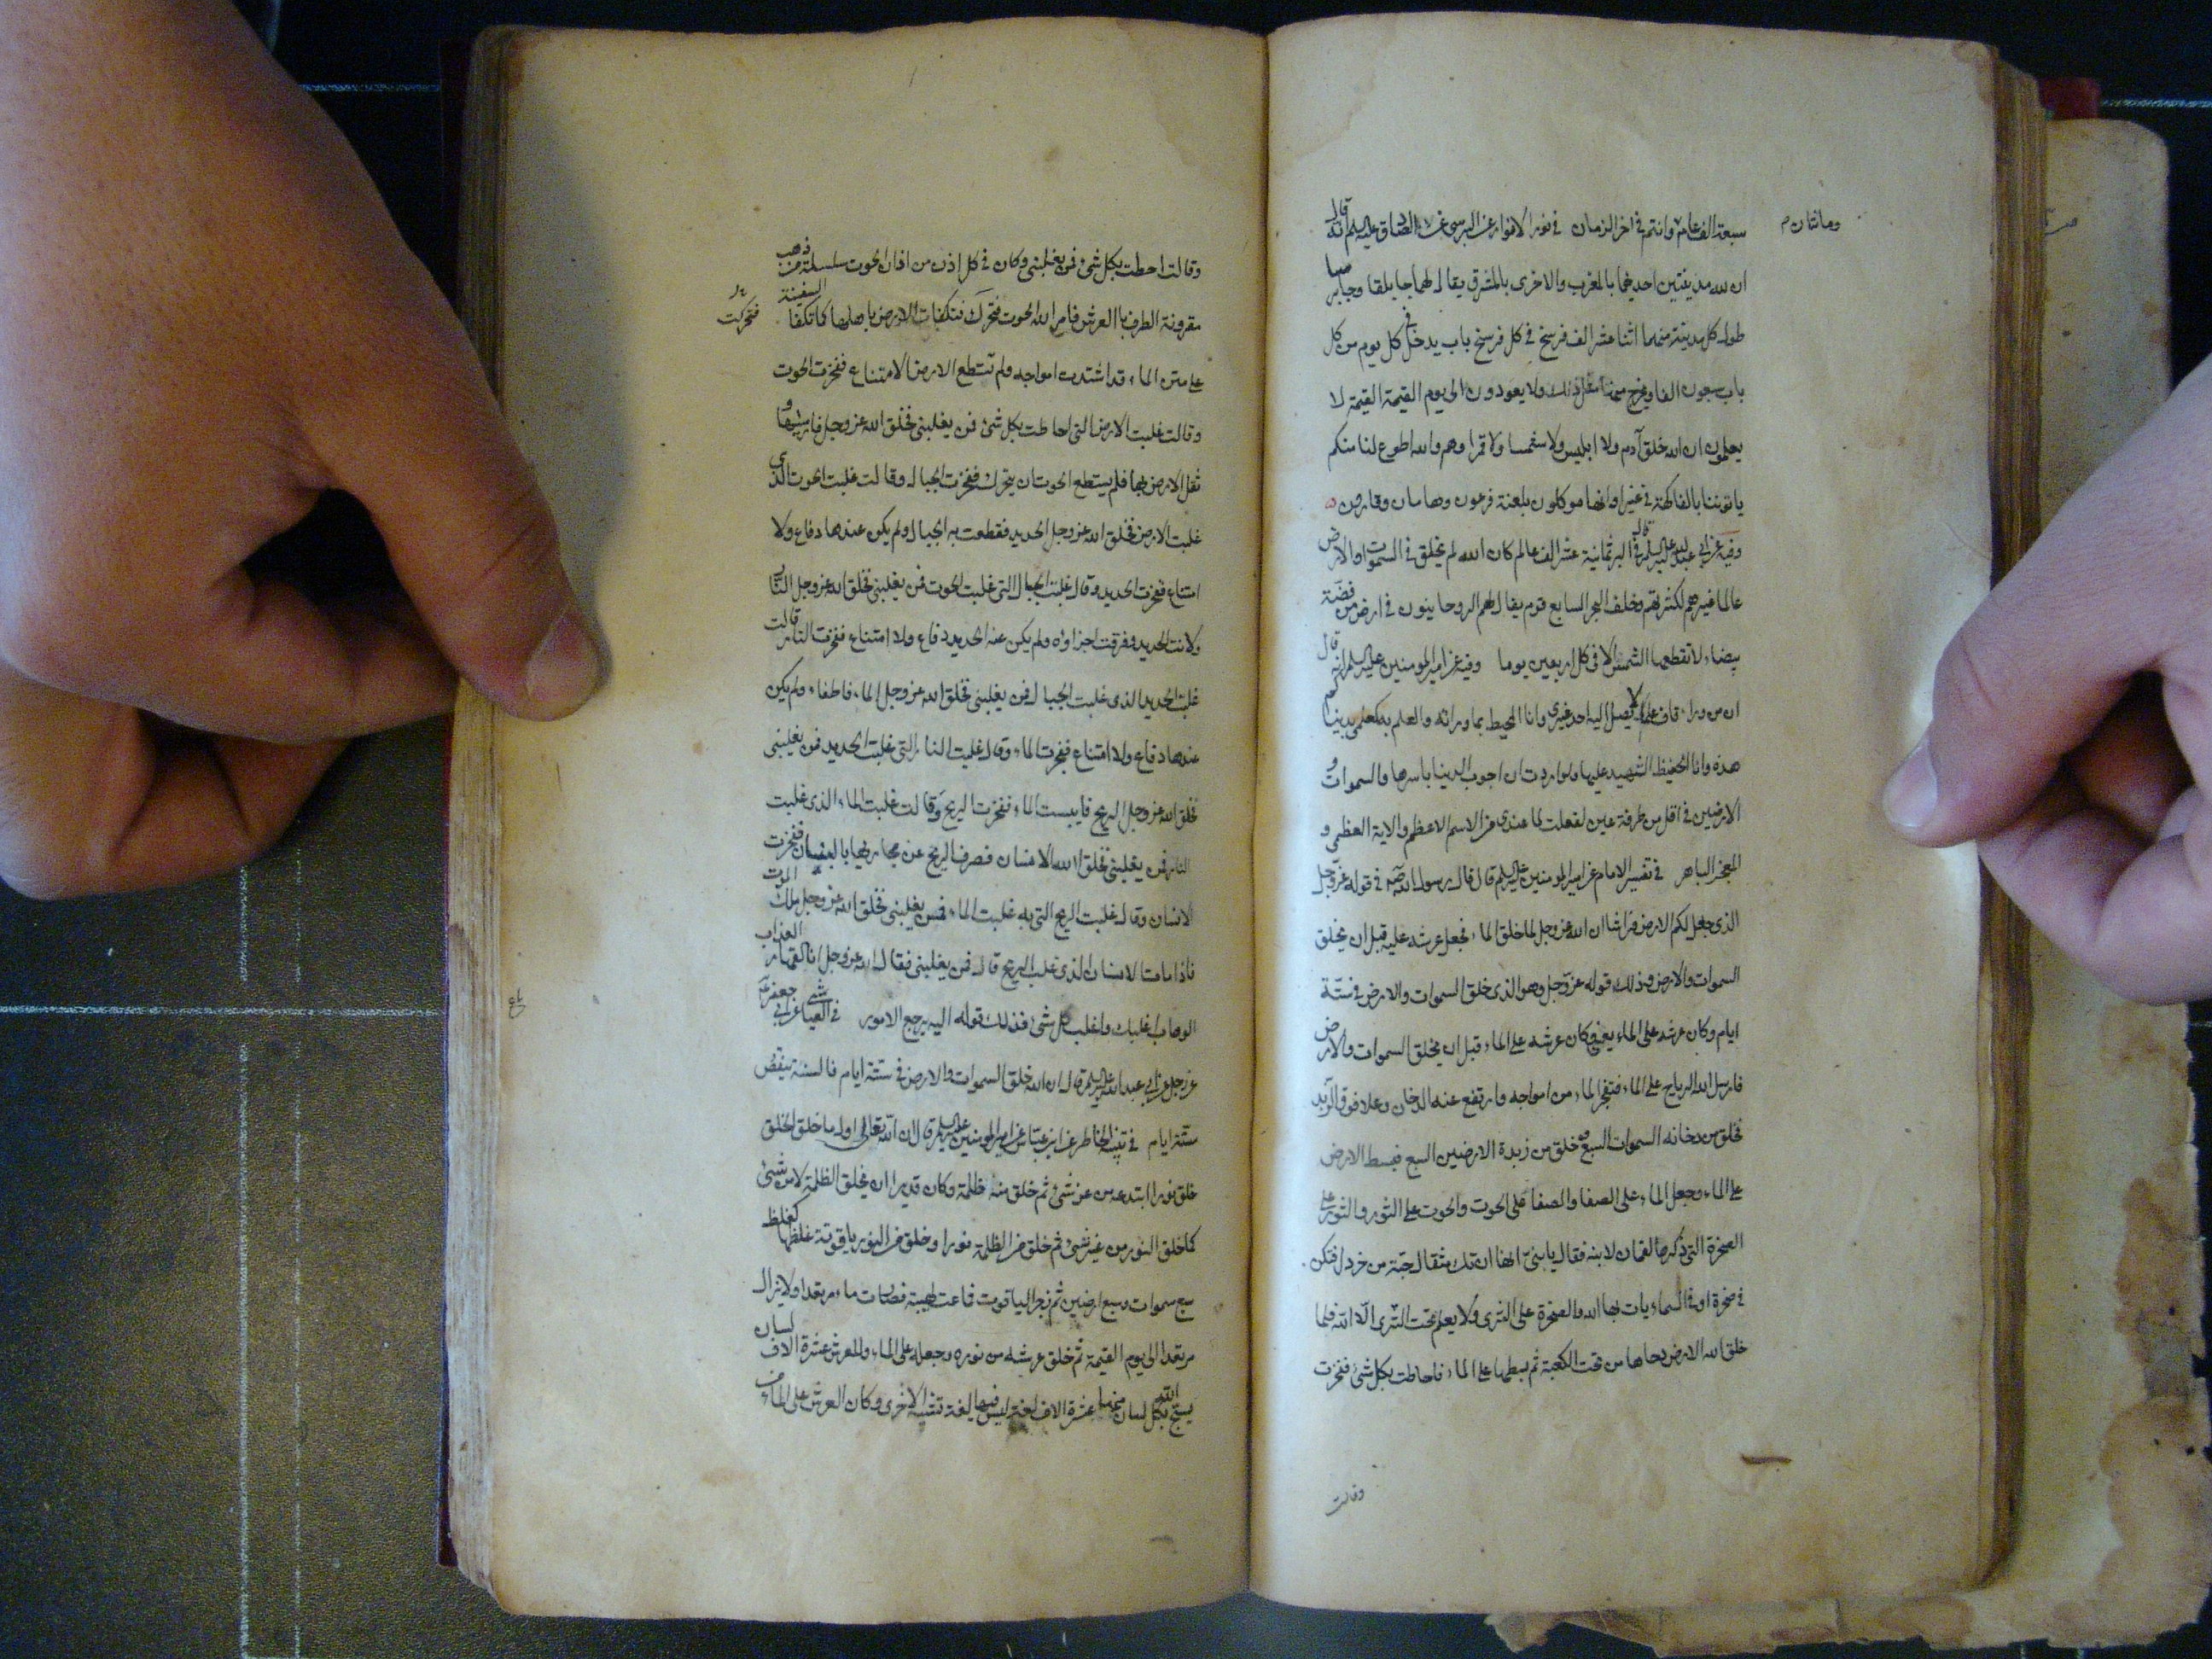 سبعة الف عام وانتم في اخر الزمان في نور الانوار عن البرسي عن الصادق عليه السلم انه قال
ومائتان م
ان لله مدينتين احديهما بالمغرب والاخرى بالمشرق يقال لهما جابلقا وجابرسا
طول كل مدينة منهما اثنا عشر الف فرسخ في كل فرسخ باب يدخل في كل يوم من كل
باب سبعون الفا ويخرج منها مثل ذلك ولا يعودون الى يوم القيمة القيمة لا
يعلمون ان الله خلق آدم ولا ابليس ولا شمسا ولا قمرا وهم والله اطوع لنا منكم
ياتوننا بالفاكهة في غير اوانها موكلون بلعنة فرعون وهامان وقارون
وفيه عن ابي عبد الله عليه السلم قال في البر ثمانية عشر الف عالم كان الله لم يخلق في السموات والارض
عالما غيرهم لكثرتهم وخلف البحر السابع قوم يقال لهم الروحانيون في ارض من فضة
بيضاء لا تقطعها الشمس الا في كل اربعين يوما وفيه عن امير المومنين عليه السلم انه قال
ان من وراء قاف عالم لا يصل اليه احد غيري وانا المحيط بما ورائه والعلم به كعلمي بدنياكم
هذه وانا الحفيظ الشهيد عليها ولو اردت ان اجوب الدينا باسرها والسموات و
الارضين في اقل من طرفة عين لفعلت لما عندي من الاسم الاعظم والاية العظمى و
المعجز الباهر في تفسير الامام عن امير المومنين عليه السلم قال قال رسول الله ص في قوله عز وجل
الذي جعل لكم الارض فراشا ان الله عز وجل لما خلق الماء فجعل عرشه عليه قبل ان يخلق
السموات والارض وذلك قوله عز وجل وهو الذي خلق السموات والارض في ستة
ايام وكان عرشه على الماء يعني وكان عرشه على الماء قبل ان يخلق السموات والارض
فارسل الله الرياح على الماء فتفجر الماء من امواجه وارتفع عنه الدخان وعلا فوق الزبد
فخلق من دخانه السموات السبع وخلق من زبده الارضين السبع فبسط الارض
على الماء وجعل الماء على الصفا والصفا على الحوت والحوت على الثور والثور على
الصخرة التي ذكرها لقمان لابنه فقال يا بني انها ان تك مثقال حبة من خردل فتكن
في صخرة او في السماء يات بها الله والصخرة على الثرى ولا يعلم تحت الثرى الا الله فلما
خلق الله الارض دحاها من تحت الكعبة ثم بسطها على الماء فاحاطت بكل شئ ففخرت
وقالت
وقالت احطت بكل شئ فمن يغلبني وكان في كل اذن من اذان الحوت سلسلة من ذهب
مقرونة الطرف باالعرش فامر الله الحوت فتحرك فتكفات الارض باهلها كما تكفا السفينة
فتحركت
على متن الماء قد اشتدت امواجه ولم تستطع الارض الامتناع ففخرت الحوت
وقالت غلبت الارض التي احاطت بكل شئ فمن يغلبني فخلق الله عز وجل فارسيها و
ثقل الارض بها فلم يستطع الحوت ان يتحرك ففخرت الجبال وقالت غلبت الحوت الذي
غلبت الارض فخلق الله عز وجل الحديد فقطعت به الجبال ولم يكن عندها دفاع ولا
امتناع ففخرت الحديد وقال غلبت الجبال التي غلبت الحوت فمن يغلبني فخلق الله عز وجل النار
ولانت الحديد وفرقت اجزاوه ولم يكن عند الحديد دفاع ولا امتناع ففخرت النار قالت
غلبت الحديد الذي غلبت الجبال فمن يغلبني فخلق الله عز وجل الماء فاطفاء ولم يكن
عندها دفاع ولا امتناع ففخرت الماء وقال غلبت النار التي غلبت الحديد فمن يغلبني
فخلق الله عز وجل الريح فايبست الماء ففخرت الريح وقالت غلبت الماء الذي غلبت
النار فمن يغلبني فخلق الله الانسان فصرف الريح عن مجاريها بالبنيان ففخرت
الانسان وقال غلبت الريح التي به غلبت الماء فمن يغلبني فخلق الله عز وجل ملك الموت
فاذا مات الانسان الذي غلب الريح قال فمن يغلبني فقال الله عز وجل انا القهار
الوهاب اغلبك واغلب كل شئ فذلك قوله اليه يرجع الامور في العياشي عن ابي جعفر
عن رجل عن ابي عبد الله عليه السلم قال ان الله خلق السموات والارض في ستة ايام فالسنة تنقص
ستة ايام في تنبيه الخاطر عن ابن عباس عن امير المومنين عليه السلم قال ان الله تعالى اول ما خلق الخلق
خلق نورا ابتدعه من غير شئ ثم خلق منه ظلمة وكان قديرا ان يخلق الظلمة لا من شئ
كما خلق النور من غير شئ ثم خلق من الظلمة نورا وخلق من النور ياقوتة غلظها كغلظ
سبع سموات وسبع ارضين ثم زجر الياقوت فماعت لهيبته فصارت ماء مرتعدا ولا يزال
مرتعدا الى يوم القيمة ثم خلق عرشه من نوره وجعله على الماء وللعرش عشرة الاف لسان
يسبح الله بكل لسان منها عشرة الاف لغة ليس فيها لغة تشبه الاخرى وكان العرش على الماء